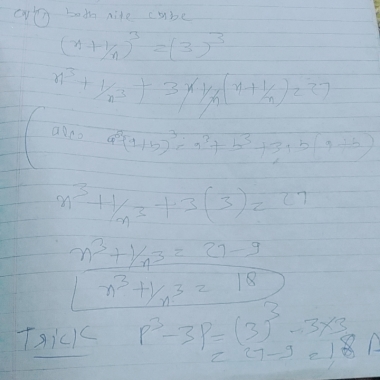 both side cube
(x+1/x)³ = (3)³
x³ + 1/x³ + 3x·1/x(x+1/x) = 27
(a+b)³ = a³ + b³ + 3ab(a+b)
x³ + 1/x³ + 3(3) = 27
x³ + 1/x³ = 27-9
x³ + 1/x³ = 18
Trick P³ - 3P = (3)³ - 3×3
= 27-9 = 18 A